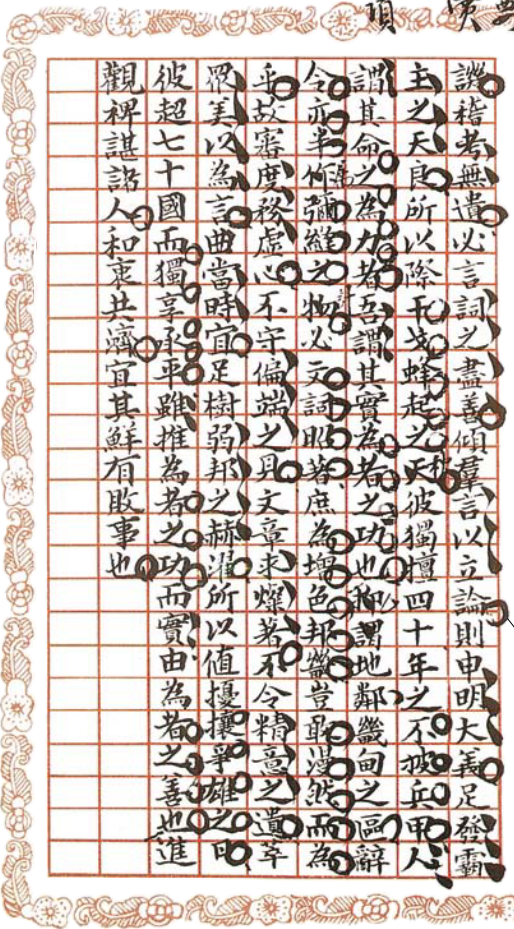 譏稽考無遺必言詞之盡善傾羣言以立論則申明大義足發霸
主之天良所以際干戈蜂起之秋彼獨擅四十年之不被兵甲人
謂其命之為力者吾謂其實為者之功也抑謂地鄰畿甸之區辭
令亦半作彌縫之物必文詞昭著庶為增色邦畿豈敢漫然而為
乎故審度務虛心不守偏端之見文章求燦著不令精意之遺萃
眾美以為言曲當時宜足樹弱邦之赫濯所以值擾攘爭雄之日
彼超七十國而獨享承平雖推為者之功而實由為者之善也進
觀裨諶諸人和衷共濟宜其鮮有敗事也